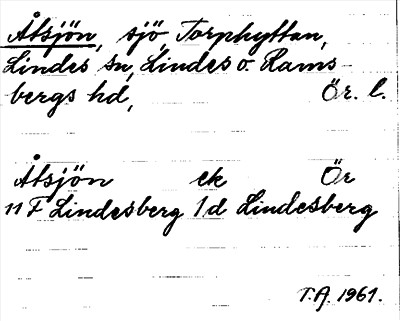 Åtsjön, sjö, Torphyttan,
Lindes sn, Lindes o. Rams-
bergs hd, Ör. l.
Åtsjön ek Ör
11 F Lindesberg 1 d Lindesberg
T.A. 1961.